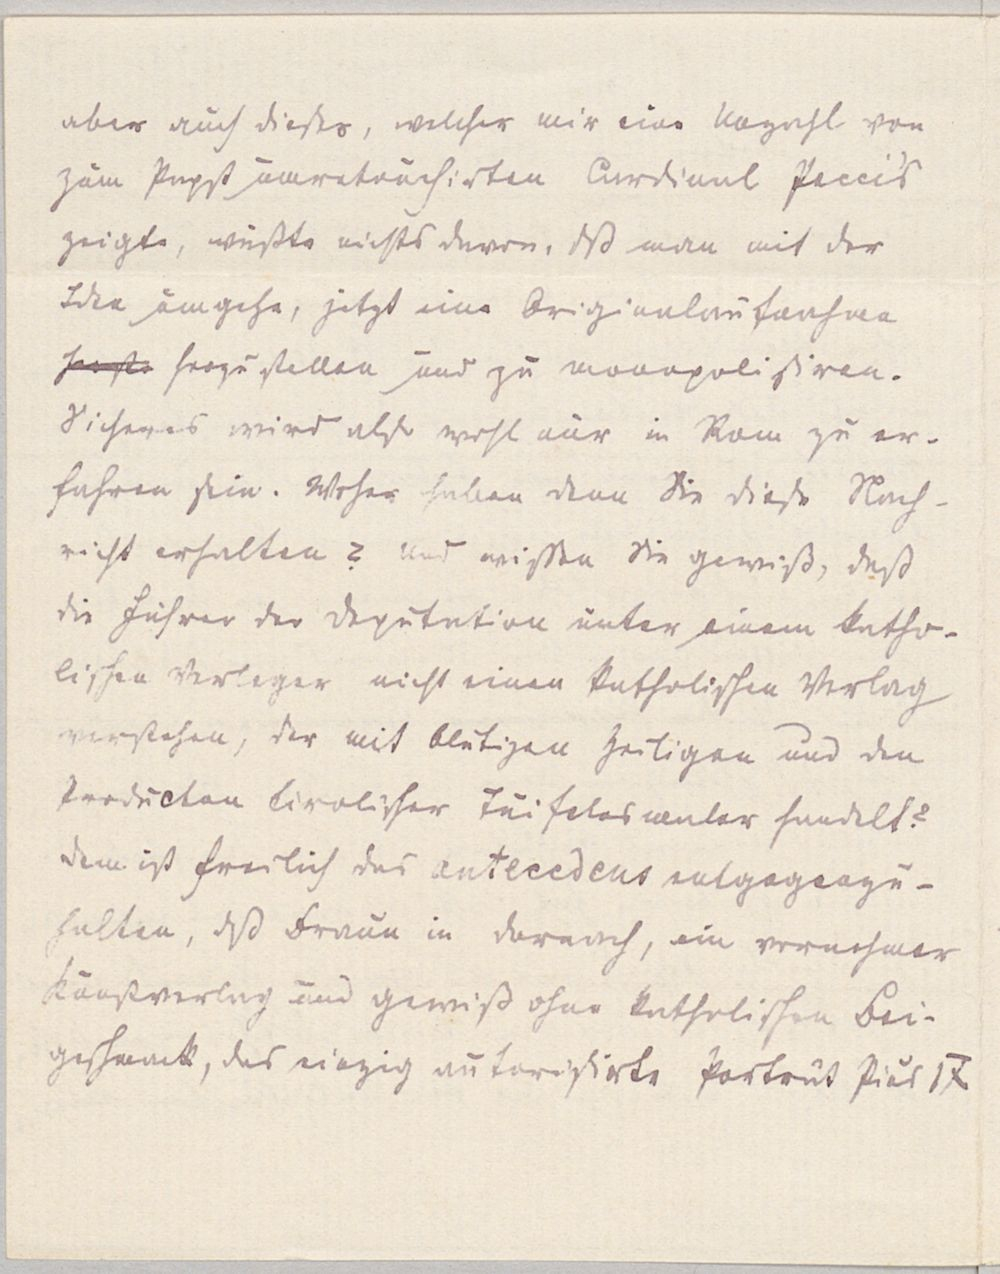 aber auch dieser, welcher mir eine Unzahl von
zum Papst umretouchirten Cardinal Pecci's
zeigte, wußte nichts davon, dß man mit der
Idee umgehe, jetzt eine Originalaufnahme
herste herzustellen und zu monopolisiren.
Sicheres wird also wohl nur in Rom zu er-
fahren sein. Woher haben denn Sie diese Nach-
richt erhalten? Und wissen Sie gewiß, daß
die Führer der Deputation unter einem katho-
lischen Verleger nicht einen katholischen Verlag
verstehen, der mit blutigen Heiligen und den
Producten tirolischer Tuifelesmaler handelt?
Dem ist freilich das antecedens entgegenzu-
halten, dß Braun in Dornach, ein vornehmer
Kunstverlag und gewiß ohne katholischen Bei-
geschmack, das einzig autorisirte Porträt Pius IX